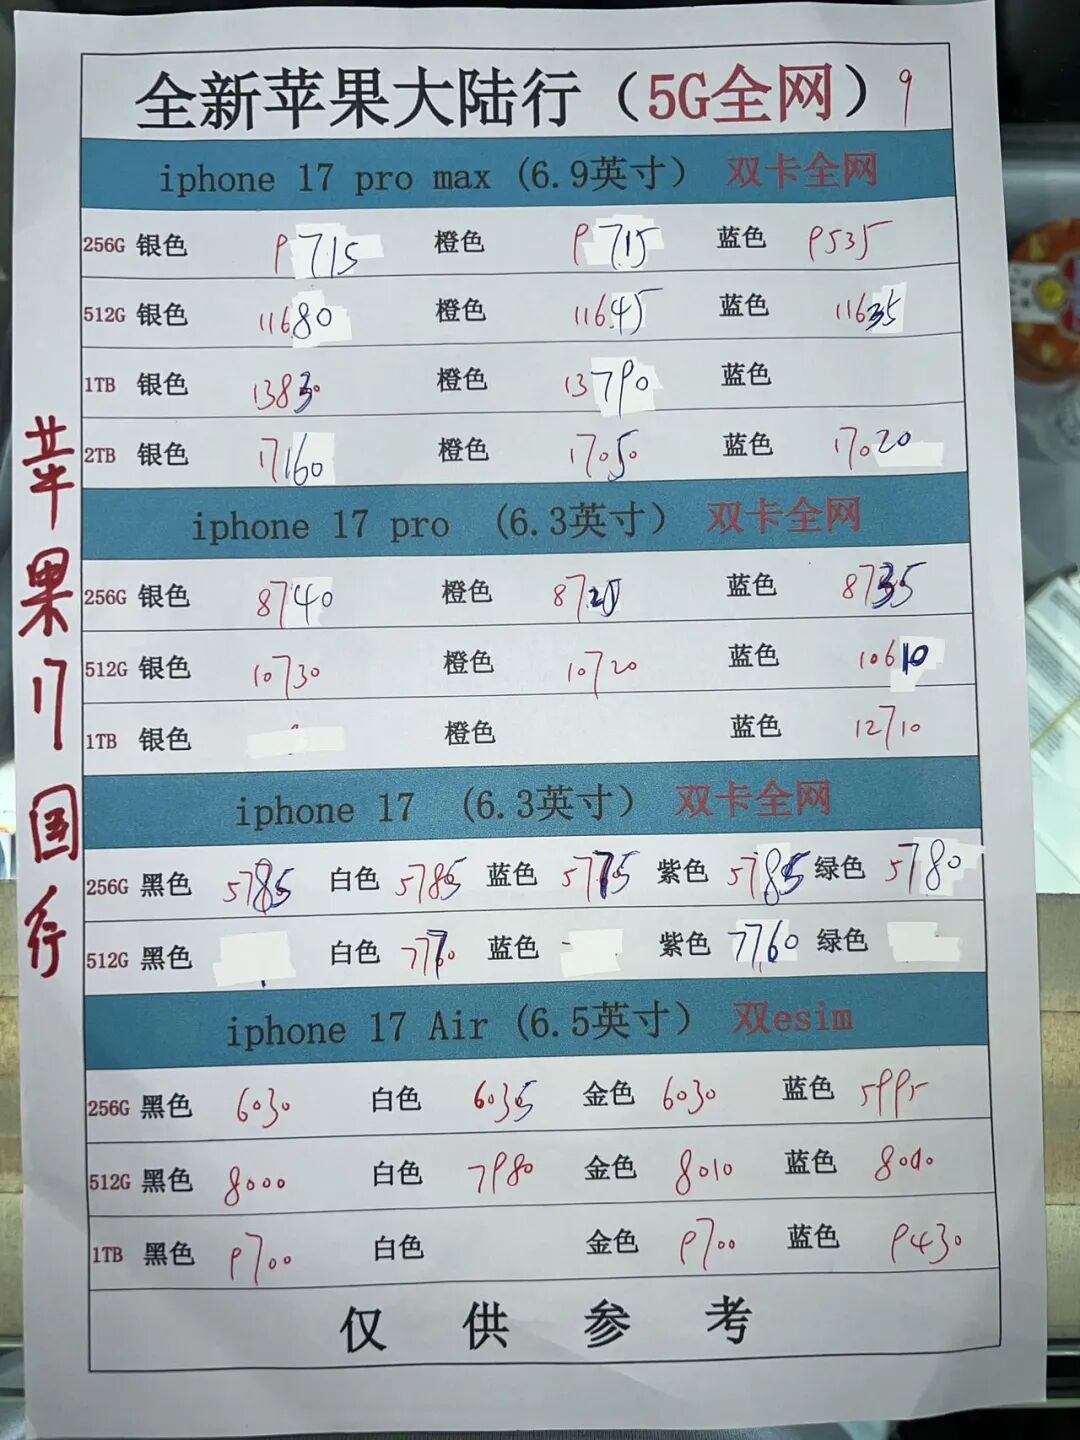 全新苹果大陆行（5G全网）9
iphone 17 pro max (6.9英寸） 双卡全网
256G 银色 9715 橙色 9715 蓝色 9535
512G 银色 11680 橙色 11645 蓝色 11635
1TB 银色 13830 橙色 13790 蓝色
2TB 银色 17160 橙色 17050 蓝色 17020
iphone 17 pro （6.3英寸） 双卡全网
256G 银色 8740 橙色 蓝色 8735
512G 银色 10730 橙色 10720 蓝色 10610
1TB 银色 橙色 蓝色 12710
iphone 17 (6.3英寸） 双卡全网
256G 黑色 5785 白色 5785 蓝色 5775 紫色 5785 绿色 5780
512G 黑色 白色 7770 蓝色 紫色 7760 绿色
iphone 17 Air (6.5英寸） 双esim
256G 黑色 6030 白色 6035 金色 6030 蓝色 5995
512G 黑色 8000 白色 7980 金色 8010 蓝色
1TB 黑色 9700 白色 金色 9700 蓝色 9430
仅供参考
苹果17国行